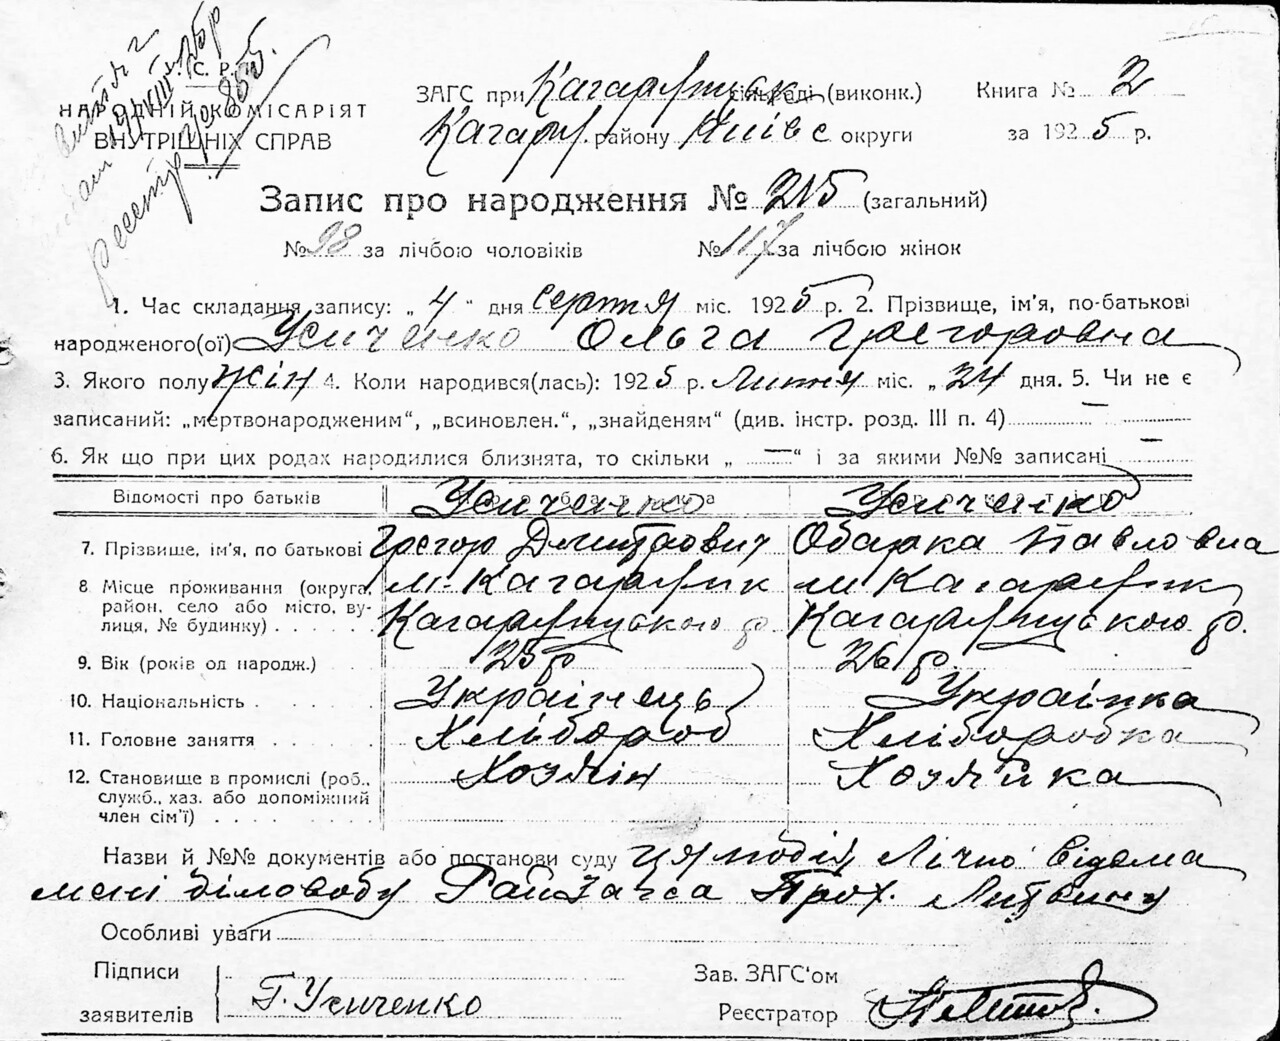 У. С. Р. Р.
НАРОДНІЙ КОМІСАРІЯТ
ВНУТРІШНІХ СПРАВ
реєстр № 855.
ЗАГС при Кагарлицьк сільраді (виконк.) Книга № 2
Кагарл. району Київс округи за 1925 р.
Запис про народження № 215 (загальний)
№ 98 за лічбою чоловіків № 117 за лічбою жінок
1. Час складання запису: „ 4 “ дня серпня міс. 1925 р. 2. Прізвище, ім'я, по-батькові
народженого(ої) Усиченко Ольга Грегоровна
3. Якого полу жін 4. Коли народився(лась): 1925 р. Липня міс. „ 24 дня. 5. Чи не є
записаний: „мертвонародженим“, „всиновлен.“, „знайденям“ (див. інстр. розд. III п. 4) —
6. Як що при цих родах народилися близнята, то скільки „ — “ і за якими №№ записані —
Відомості про батьків Усиченко Усиченко
7. Прізвише, ім'я, по батькові Грєгор Дмитрович Одарка Павловна
8 Місце проживання (округа, м. Кагарлик м Кагарлик
район, село або місто, ву-
лиця, № будинку) Кагарлицького р. Кагарлицького р.
9. Вік (років од народж.) 25 р 26 р.
10. Національність Українець Українка
11. Головне заняття Хлібороб Хліборобка
12. Становище в промислі (роб., Хозяін Хозяйка
служб., хаз. або допоміжний
член сім'ї)
Назви й №№ документів або постанови суду ця подія Лічно відома
мені діловоду Райзагса Прох. Литвину
Особливі уваги
Підписи Зав. ЗАГС'ом
заявителів Г. Усиченко Реєстратор